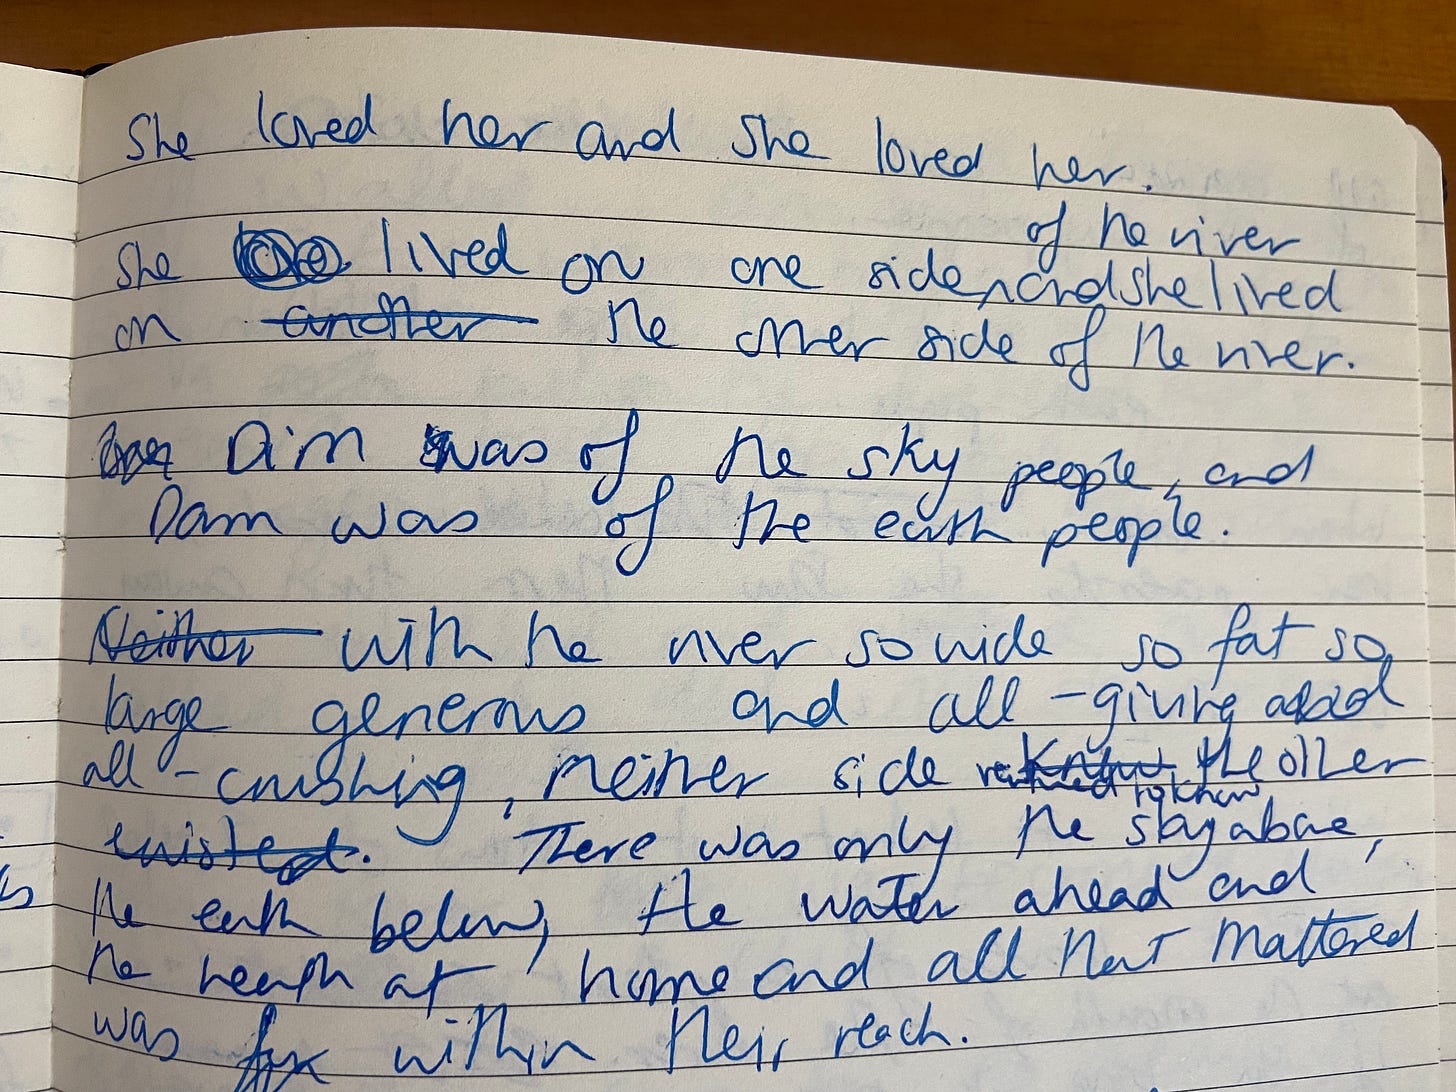 She loved her and she loved her.
of the river
She lived on one side, and she lived
on another the other side of the river.
Dim was of the sky people, and
Dam was of the earth people.
Neither with the river so wide so fat so
large generous and all-giving and
all-crushing, neither side the other
to know
existed. There was only the sky above,
the earth below, the water ahead and
the hearth at home and all that mattered
was within their reach.